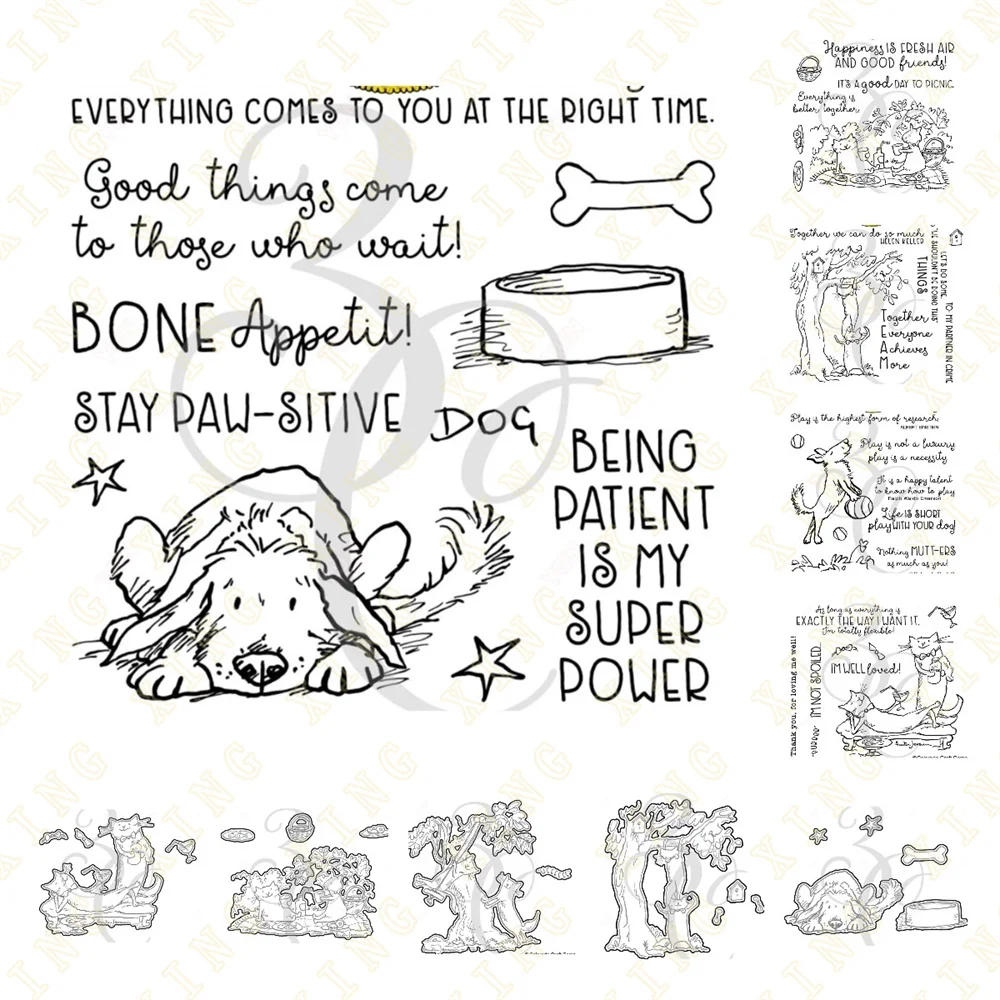 EVERYTHING COMES TO YOU AT THE RIGHT TIME.
Good things come
to those who wait!
BONE Appetit!
STAY PAW-SITIVE
DOG
BEING
PATIENT
IS MY
SUPER
POWER
Happiness IS FRESH AIR
AND GOOD friends!
IT'S A good DAY TO PICNIC.
Everything is
better together
Together we can do so much
HELEN KELLER
WE SHOULDN'T BE DOING THIS
LET'S DO SOME
THINGS
TO MY PARTNER IN CRIME
Together
Everyone
Achieves
More
Play is the highest form of research.
Play is not a luxury
play is a necessity
It is a happy talent
to know how to play
Ralph Waldo Emerson
Life IS SHORT
play WITH YOUR dog!
Nothing MUTT-ERS
as much as you!
As long as everything is
EXACTLY THE WAY I WANT IT,
I'm totally flexible!
I'M WELL loved!
Thank you, for loving me well!
I'M NOT SPOILED.
XING